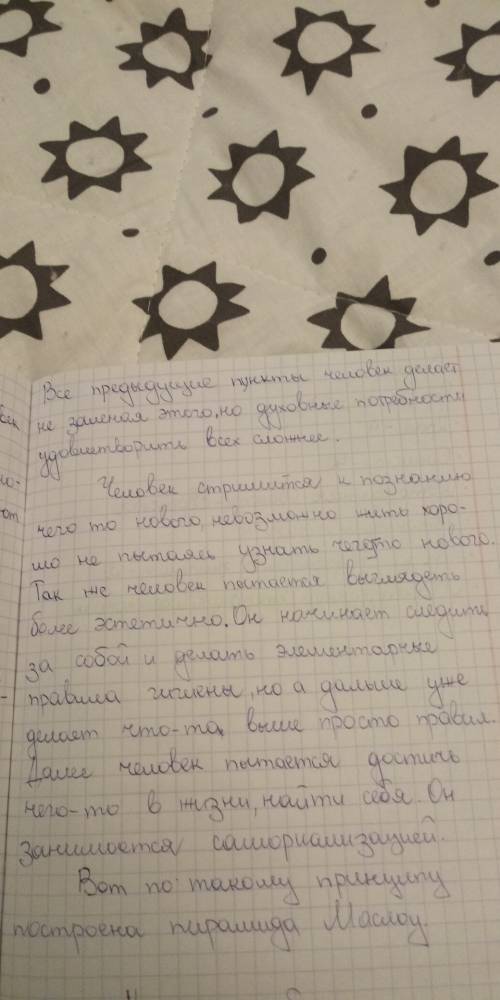 Все предыдущие пункты человек делает
не заменая этого, но духовные потребности
удовлетворить всех сложнее.
Человек стримится к познанию
чего то нового, невозможно жить хоро-
шо не пытаясь узнать чего то нового.
Так же человек пытается выглядеть
более эстетично. Он начинает следить
за собой и делать элементарные
правила гигиены, но а дальше уже
делает что-то выше просто правил.
Далее человек пытается достичь
чего-то в жизни, найти себя. Он
занимается самориализацией.
Вот по такому принципу
построена пирамида Маслоу.